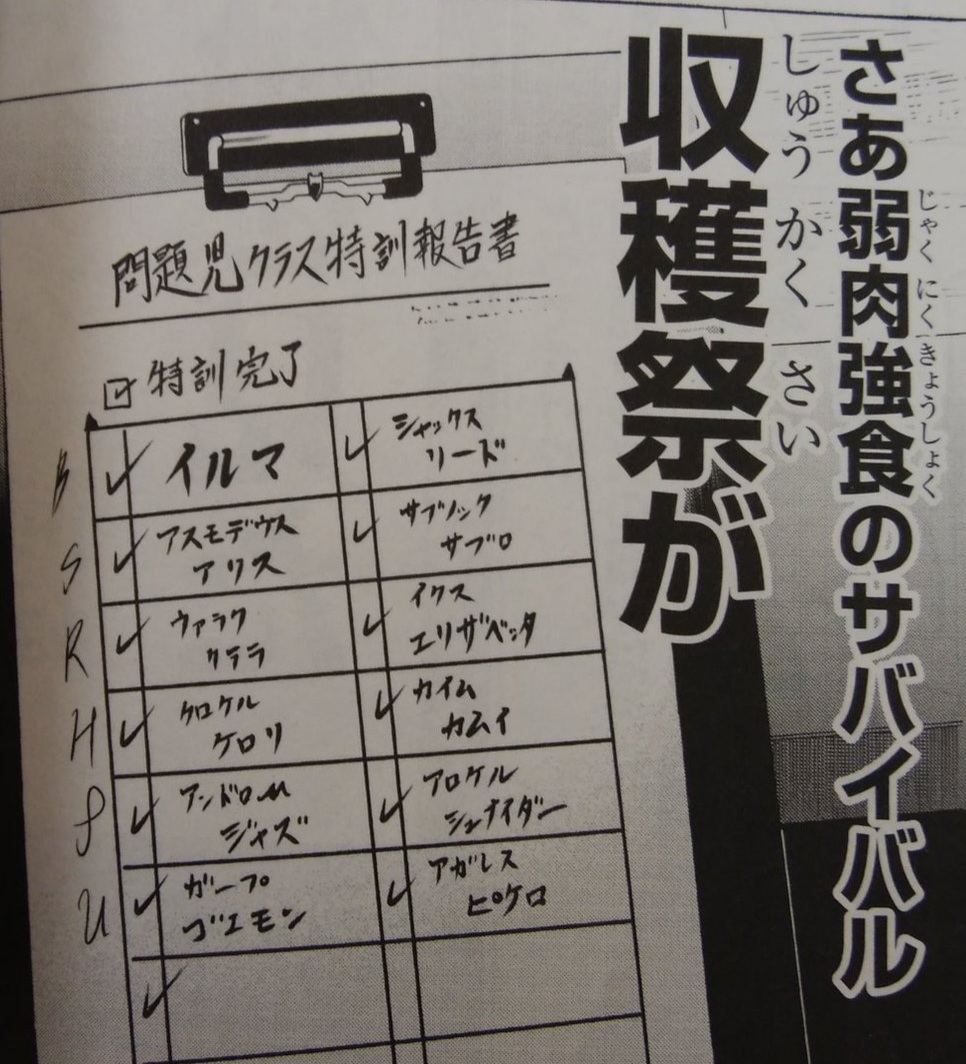 さあ弱肉強食のサバイバル
じゃくにくきょうしょく
収穫祭が
しゅうかくさい
問題児クラス特訓報告書
☑特訓完了
B
イルマ
シャックス
リード
S
アスモデウス
アリス
サブノック
サブロ
R
ウァラク
クララ
イクス
エリザベッタ
H
クロケル
ケロリ
カイム
カムイ
アンドロM
ジャズ
アロケル
シュナイダー
U
ガープ
ゴエモン
アガレス
ピケロ